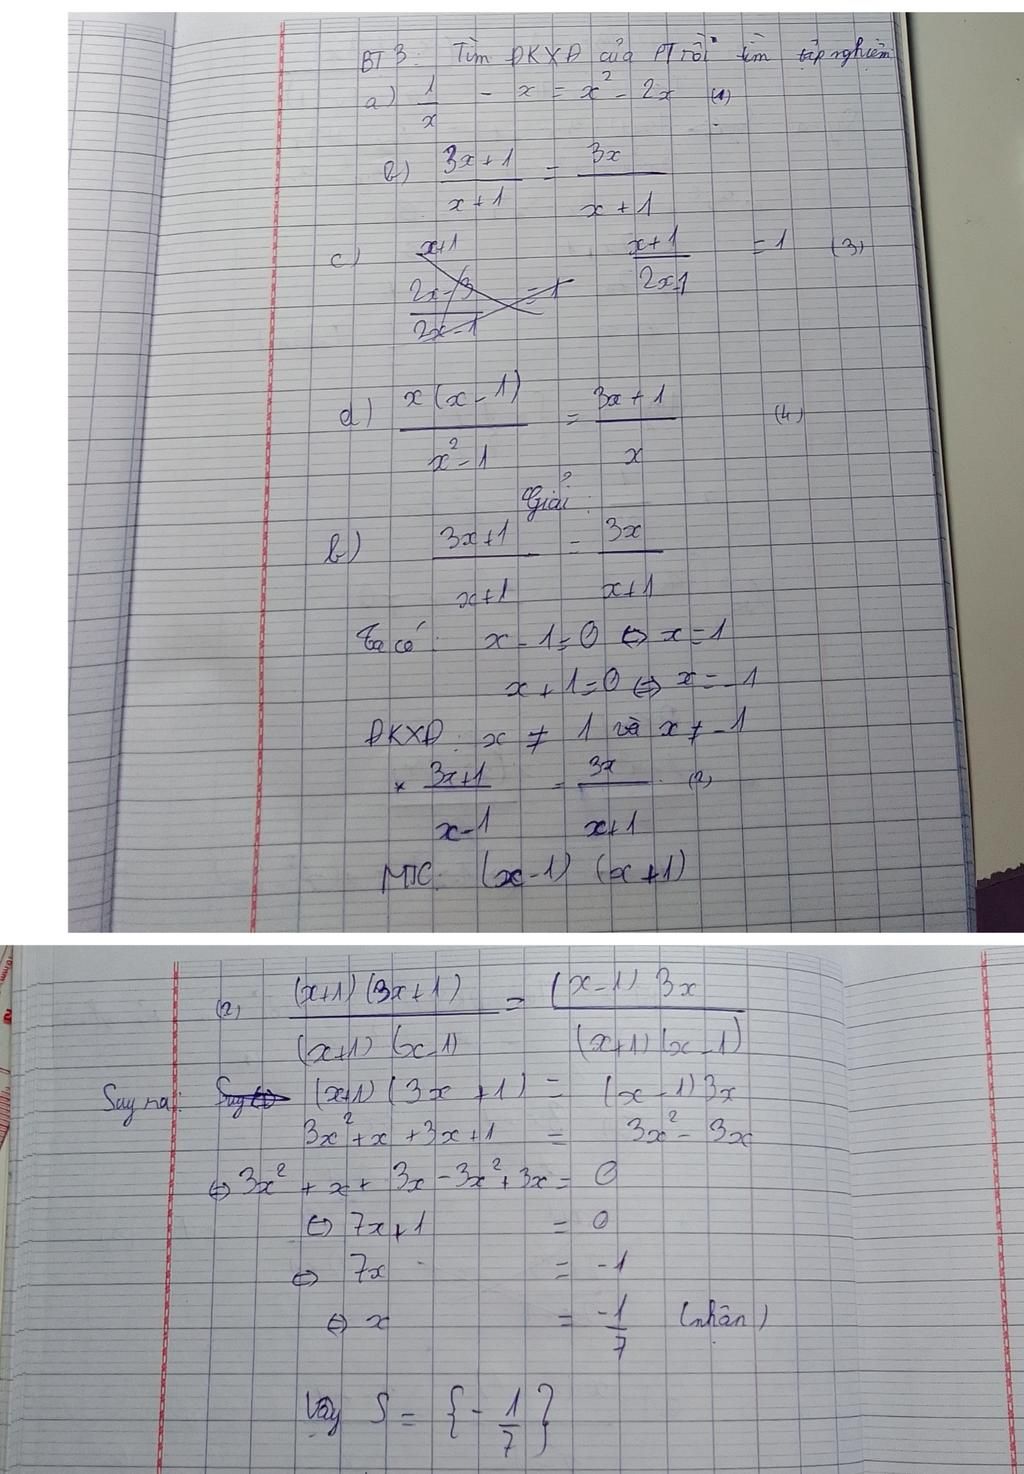 BT 3: Tìm ĐKXĐ của PT rồi tìm tập nghiệm
a) 1/x - x = x² - 2x (1)
b) (3x+1)/(x+1) = 3x/(x+1)
c) x+1 (2x-3)/(2x-1) = 1 (x+1)/(2x-1) = 1 (3)
d) x(x-1)/(x²-1) = (3x+1)/x (4)
Giải:
b) (3x+1)/(x+1) = 3x/(x+1)
Ta có: x - 1 = 0 ⇔ x = 1
x + 1 = 0 ⇔ x = -1
ĐKXĐ: x ≠ 1 và x ≠ -1
* (3x+1)/(x-1) = 3x/(x+1) (2)
MTC: (x-1) (x+1)
(2) (x+1)(3x+1)/(x+1)(x-1) = (x-1) 3x/(x+1)(x-1)
Suy ra: (x+1) (3x+1) = (x-1)3x
3x² + x + 3x + 1 = 3x² - 3x
⇔ 3x² + x + 3x - 3x² + 3x = 0
⇔ 7x + 1 = 0
⇔ 7x = -1
⇔ x = -1/7 (nhận)
Vậy S = {- 1/7}